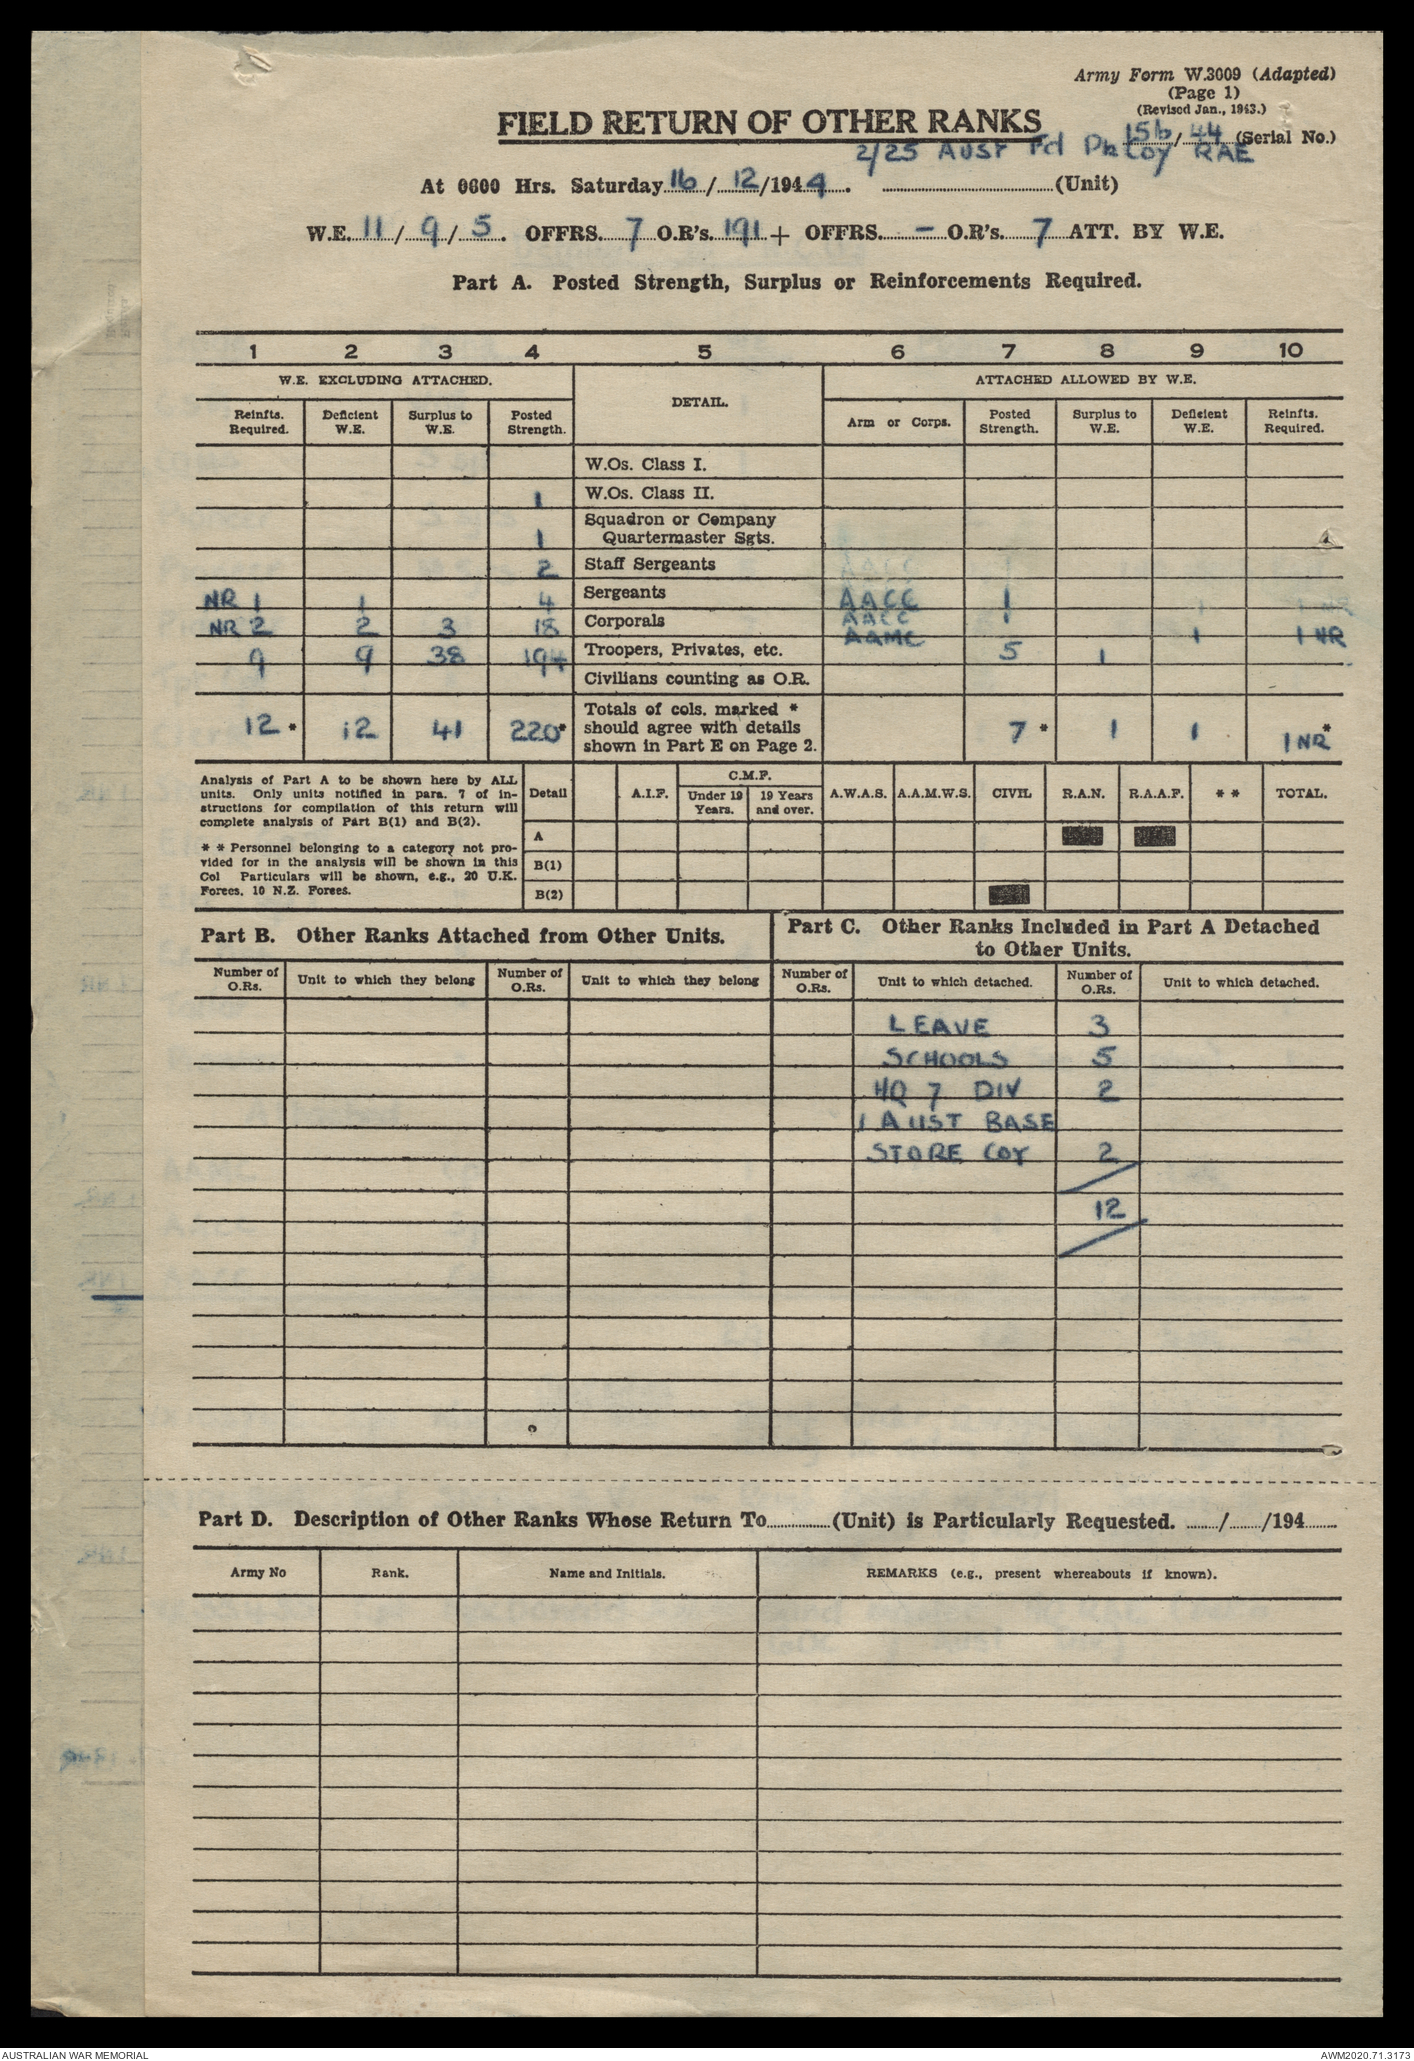 Army Form W.3009 (Adapted)
(Page 1)
(Revised Jan., 1943.)
FIELD RETURN OF OTHER RANKS
156/44 (Serial No.)
2/25 AUST Fd Pk Coy RAE
At 0600 Hrs. Saturday 16/12/1944. (Unit)
W.E. 11/9/5. OFFRS. 7 O.R's. 191 + OFFRS. – O.R's. 7 ATT. BY W.E.
Part A. Posted Strength, Surplus or Reinforcements Required.
1 2 3 4 5 6 7 8 9 10
W.E. EXCLUDING ATTACHED. DETAIL. ATTACHED ALLOWED BY W.E.
Reinfts. Required. Deficient W.E. Surplus to W.E. Posted Strength. Arm or Corps. Posted Strength. Surplus to W.E. Deficient W.E. Reinfts. Required.
W.Os. Class I.
1 W.Os. Class II.
1 Squadron or Company Quartermaster Sgts.
2 Staff Sergeants
NR 1 1 4 Sergeants AACC 1
NR 2 2 3 18 Corporals AACC 1
AAMC 1 1 NR
9 9 38 194 Troopers, Privates, etc. 5 1
Civilians counting as O.R.
12 * 12 41 220* Totals of cols. marked * should agree with details shown in Part E on Page 2. 7 * 1 1 1 NR *
Analysis of Part A to be shown here by ALL
units. Only units notified in para. 7 of in-
structions for compilation of this return will
complete analysis of Part B(1) and B(2).
* * Personnel belonging to a category not pro-
vided for in the analysis will be shown in this
Col Particulars will be shown, e.g., 20 U.K.
Forces, 10 N.Z. Forces.
Detail A.I.F. C.M.F. Under 19 Years. 19 Years and over. A.W.A.S. A.A.M.W.S. CIVIL R.A.N. R.A.A.F. * * TOTAL.
A
B(1)
B(2)
Part B. Other Ranks Attached from Other Units.
Part C. Other Ranks Included in Part A Detached
to Other Units.
Number of O.Rs. Unit to which they belong Number of O.Rs. Unit to which they belong Number of O.Rs. Unit to which detached. Number of O.Rs. Unit to which detached.
LEAVE 3
SCHOOLS 5
HQ 7 DIV 2
1 AUST BASE
STORE COY 2
12
Part D. Description of Other Ranks Whose Return To (Unit) is Particularly Requested. / /194
Army No Rank. Name and Initials. REMARKS (e.g., present whereabouts if known).
AUSTRALIAN WAR MEMORIAL AWM2020.71.3173